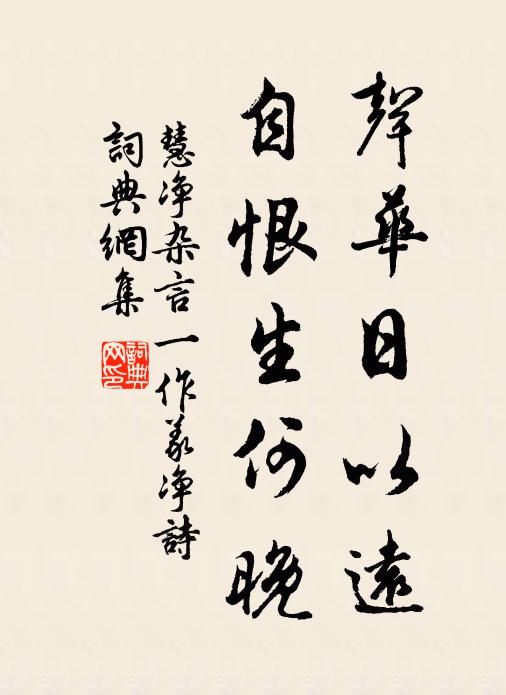 聲華日以遠
自恨生何晚
慧净杂言一作義净詩
詞典網集
詞典网印